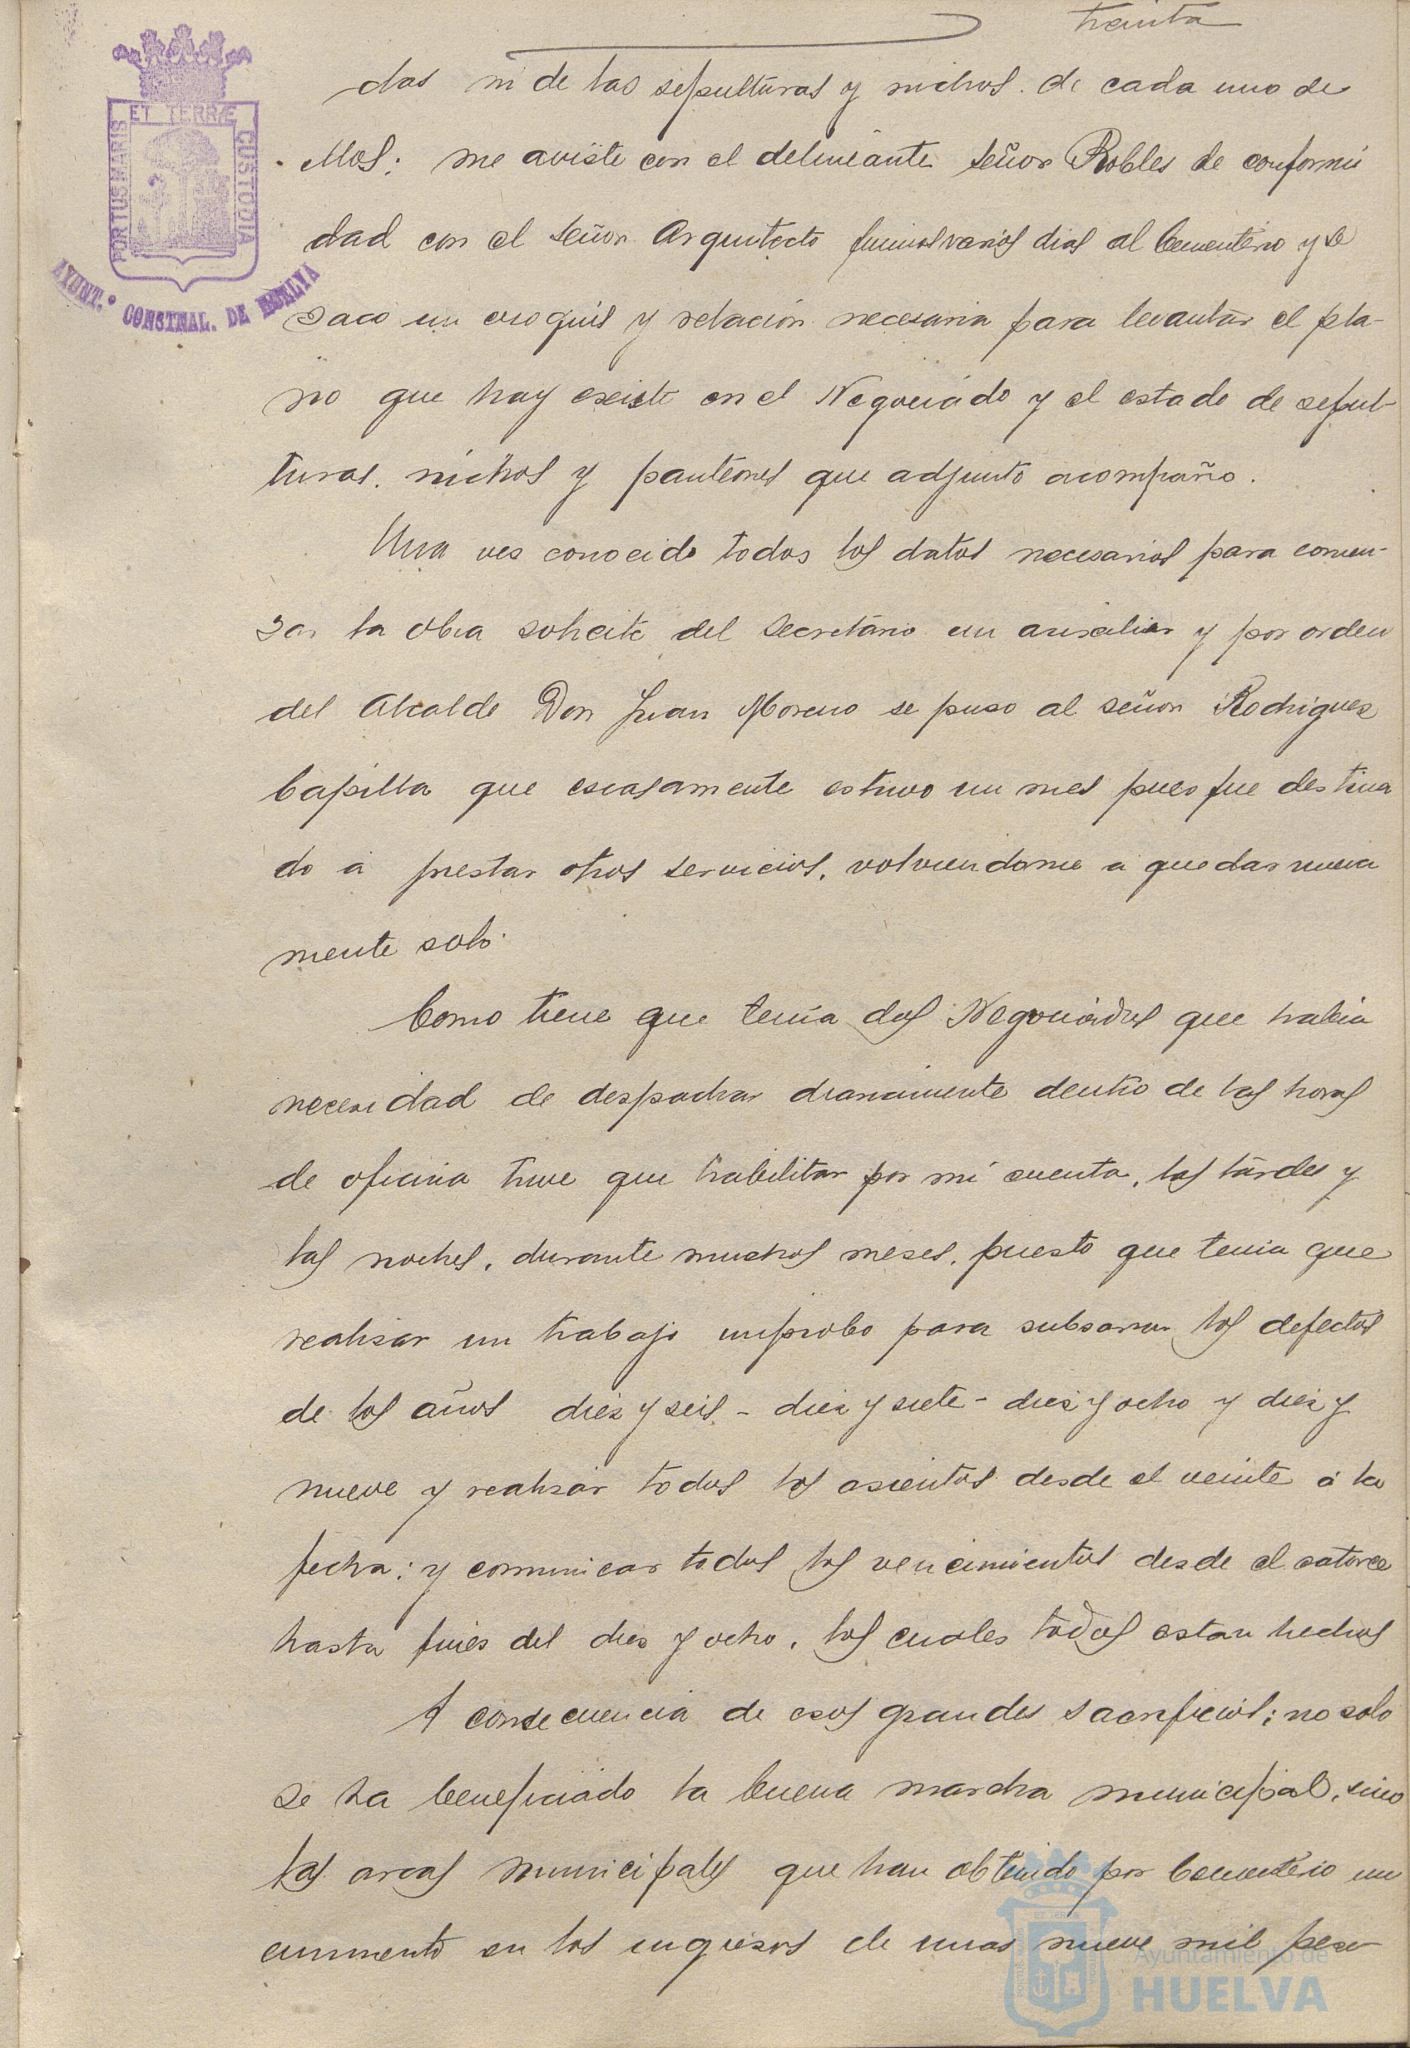 treinta
das ni de las sepulturas y nichos. de cada uno de
ellos: me aviste con el delineante señor Robles de conformi
dad con el señor Arquitecto fuimos varios dias al Cementerio y se
PORTUS MARIS ET TERRÆ CUSTODIA
AYUNT.º CONSTNAL. DE HUELVA
saco un croquis y relacion necesaria para levantar el pla-
no que hay existe en el Negociado y el estado de sepul-
turas. nichos y panteones que adjunto acompaño.
Una ves conocido todos los datos necesarios para comen-
zar la obra solicite del Secretario un auxiliar y por orden
del Alcalde Don Juan Moreno se puso al señor Rodriguez
Capilla que escasamente estuvo un mes pues fue destina
do a prestar otros servicios, volviendome a quedar nueva
mente solo.
Como tiene que tenia dos Negociados que habia
necesidad de despachar diariamente dentro de las horas
de oficina tuve que habilitar por mi cuenta, las tardes y
las noches, durante muchos meses, puesto que tenia que
realizar un trabajo improbo para subsanar los defectos
de los años diez y seis - diez y siete - diez y ocho y diez y
nueve y realizar todos los asientos desde el veinte á la
fecha; y comunicar todos los vencimientos desde el catorce
hasta fines del dies y ocho, los cuales todos estan hechos
A consecuencia de esos grandes sacrificios; no solo
se ha beneficiado la buena marcha municipal, sino
las arcas municipales que han obtenido por Cementerio un
aumento en los ingresos de unas nueve mil pese
Ayuntamiento de
HUELVA